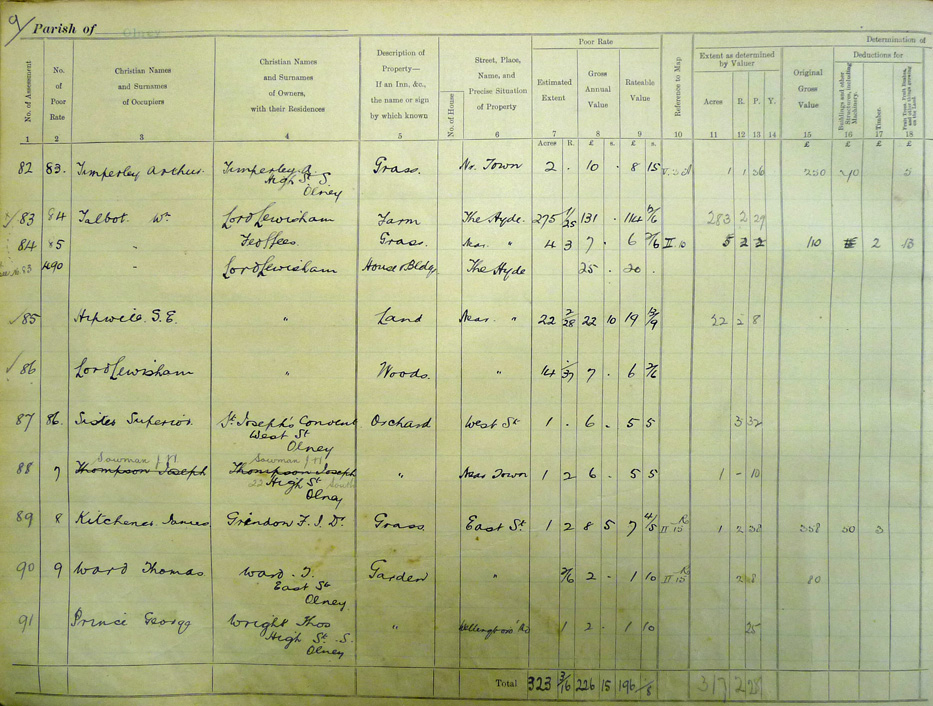 9/ Parish of Olney
Determination of
Poor Rate
Extent as determined by Valuer
Deductions for
No. of Assessment
No. of Poor Rate
Christian Names and Surnames of Occupiers
Christian Names and Surnames of Owners, with their Residences
Description of Property— If an Inn, &c., the name or sign by which known
No. of House
Street, Place, Name, and Precise Situation of Property
Estimated Extent
Gross Annual Value
Rateable Value
Reference to Map
Acres R. P. Y.
Original Gross Value
Buildings and other Structures, including Machinery.
Timber.
Fruit Trees, Fruit Bushes, and other things growing on the Land.
1 2 3 4 5 6 7 8 9 10 11 12 13 14 15 16 17 18
Acres R. £ s. £ s. £ £ £ £
82 83. Timperley Arthur. Timperley A. Grass. Nr. Town 2 . 10 . 8 15 1 1 36 250 5
High St S.
Olney
83 84 Talbot Wm Lord Lewisham Farm The Hyde. 275 131 . 114 283 2 29
84 5 " Feoffees. Grass. Near " 4 3 7 . 6 II 10 110 2 13
490 " Lord Lewisham House & Bldgs The Hyde 25 . 20 .
85 S. E. " Land Near " 22 22 10 19 22 2 8
86 Lord Lewisham " Woods. " 14 7 . 6
87 86. Sister Superior. St. Joseph's Convent Orchard West St 1 . 6 . 5 5 3 32
West St
Olney
Sowman J H Sowman J H
88 7 Thompson Joseph Thompson Joseph " Near Town 1 2 6 . 5 5 1 - 10
22 High St South
Olney
89 8 Kitchener James Grindon F. J. D. Grass. East St. 1 2 8 5 7 4/5 II 15 1 2 38 358 50 3
90 9 Ward Thomas Ward . T. Garden " 2 . 1 10 II 15 2 8 80
East St
Olney.
91 Prince George Wright Thos " Wellington Rd 1 2 . 1 10 25
High St. S.
Olney
Total 323 3/16 226 15 196 317 2 28